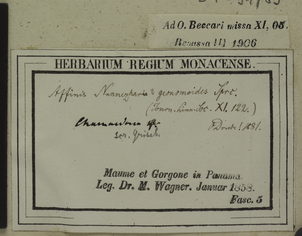 Ad O. Beccari missa XI, 05.
Reversa III 1906
HERBARIUM REGIUM MONACENSE.
Affinis geonomoides Spr.
(Journ. Linn. Soc. XI, 122.)
Chamaedorea
Drude 1881.
Mamme et Gorgone in Panama
Leg. Dr. M. Wagner. Januar 1858.
Fasc. 5